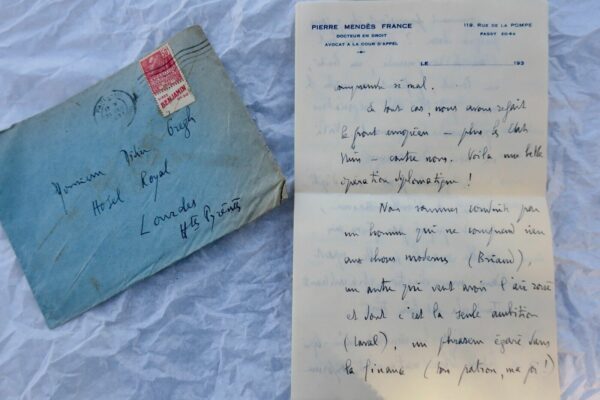 Monsieur Didier
Gregh
Hôtel Royal
Lourdes
Htes Pyrénées
BENJAMIN
PIERRE MENDÈS FRANCE
DOCTEUR EN DROIT
AVOCAT À LA COUR D'APPEL
119, RUE DE LA POMPE
PASSY
LE 193
si mal.
En tout cas, nous avons refait
le front européen – plus les Etats
Unis – contre nous. Voilà une belle
opération diplomatique !
Nous sommes conduits par
un homme qui ne comprend rien
aux choses modernes (Briand),
un autre qui veut avoir l'air rosse
et dont c'est la seule ambition
(Laval), un phraseur égaré dans
la finance (ton patron, ma foi !)